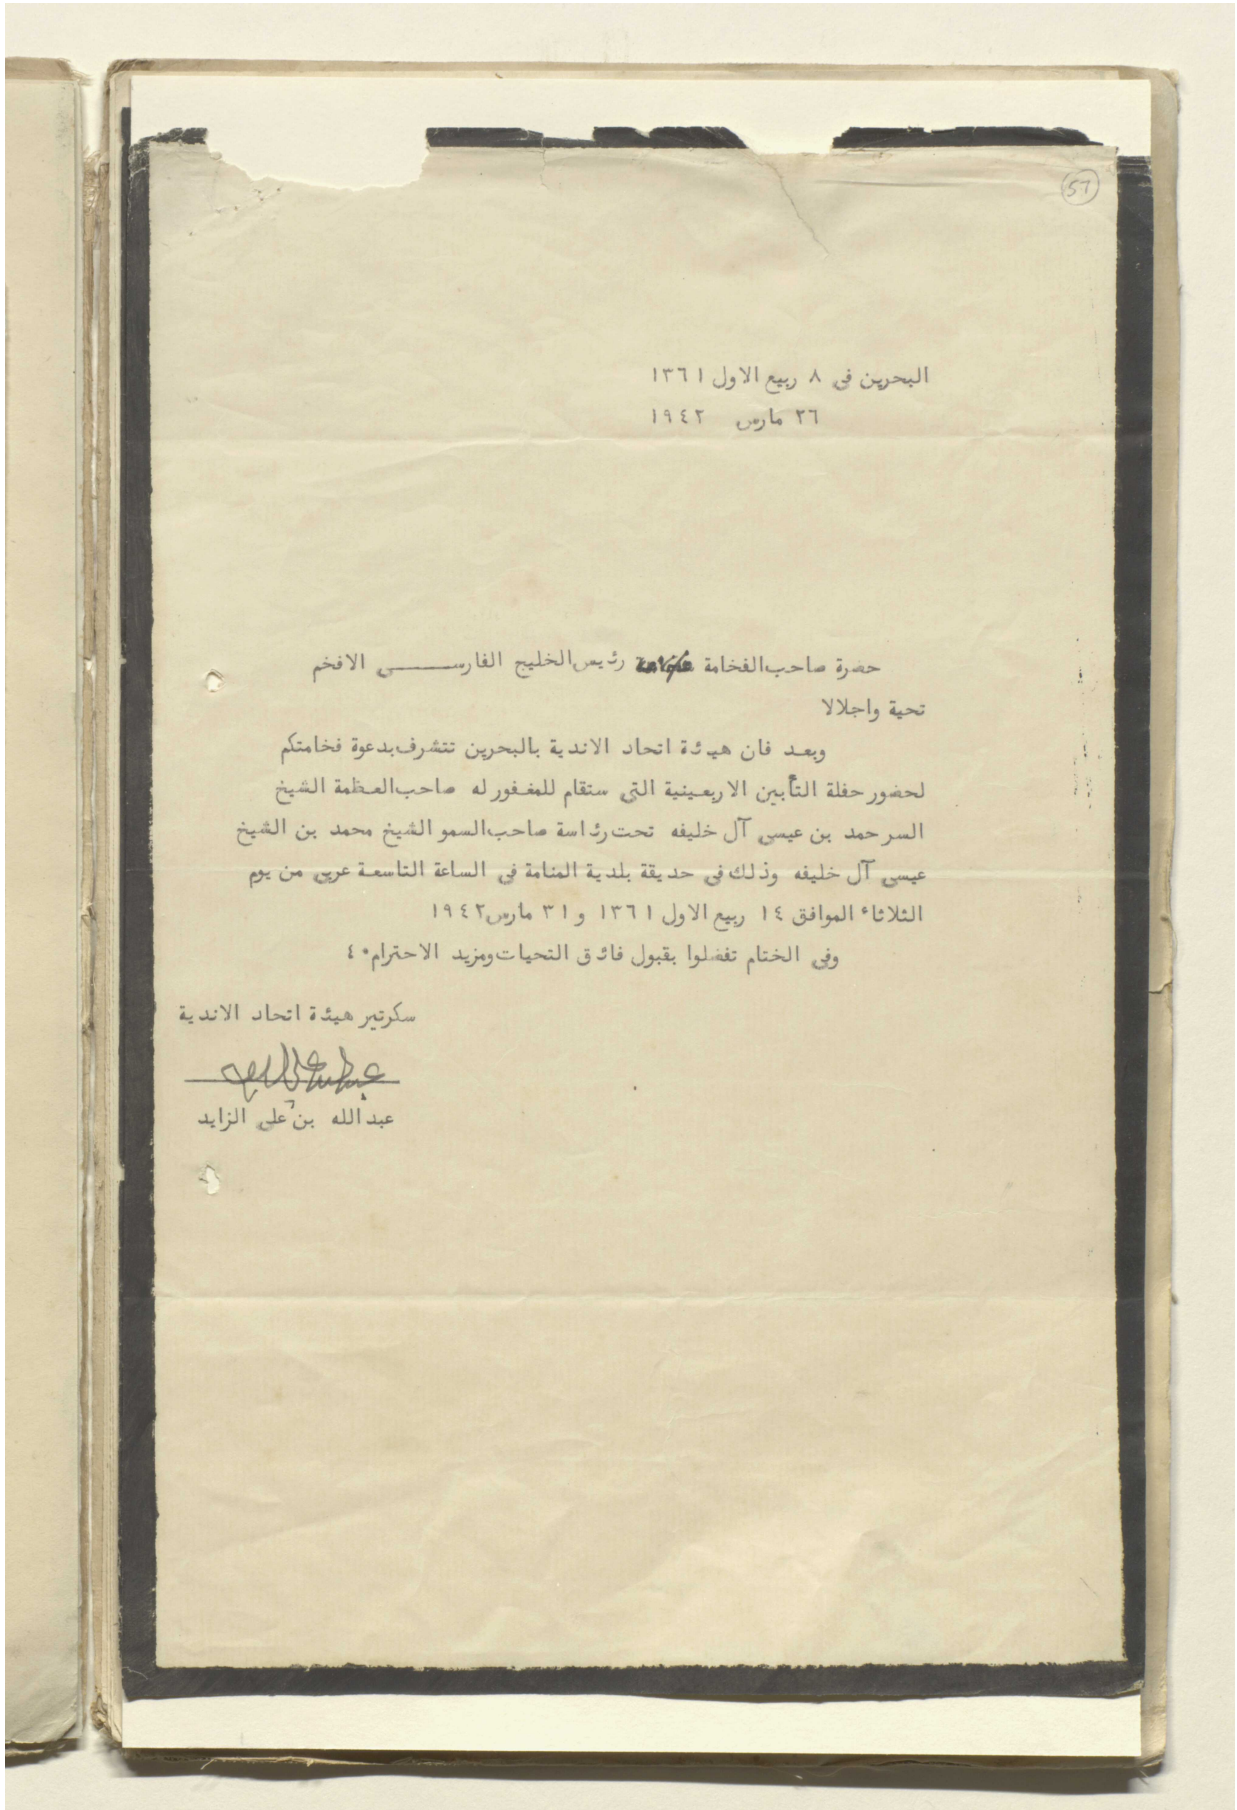 57
البحرين في ٨ ربيع الاول ١٣٦١
٢٦ مارس ١٩٤٢
حضرة صاحب الفخامة رئيس الخليج الفارســـــى الافخم
تحية واجلالا
وبعد فان هيئة اتحاد الاندية بالبحرين تتشرف بدعوة فخامتكم
لحضور حفلة التأبين الاربعينية التي ستقام للمغفور له صاحب العظمة الشيخ
السر حمد بن عيسى آل خليفه تحت رئاسة صاحب السمو الشيخ محمد بن الشيخ
عيسى آل خليفه وذلك في حديقة بلدية المنامة في الساعة التاسعة عربي من يوم
الثلاثاء الموافق ١٤ ربيع الاول ١٣٦١ و ٣١ مارس ١٩٤٢
وفي الختام تفضلوا بقبول فائق التحيات ومزيد الاحترام٠ ٤
سكرتير هيئة اتحاد الاندية
عبد الله بن علي الزايد